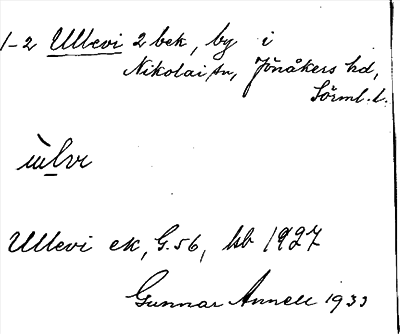 1-2 Ullevi 2 bek, by i
Nikolai sn, Jönåkers hd,
Sörml. l.
ùlvi
Ullevi ek, G. 56, kb 1927
Gunnar Annell 1933